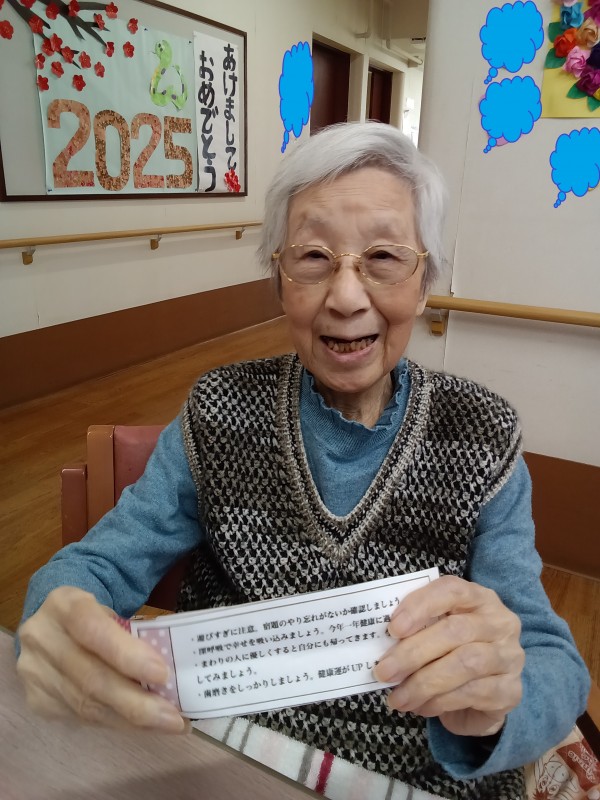 2025
あけまして
おめでとう
・遊びすぎに注意。宿題のやり忘れがないか確認しましょう
・深呼吸で幸せを吸い込みましょう。今年一年健康に過
・まわりの人に優しくすると自分にも帰ってきます。
してみましょう。
・歯磨きをしっかりしましょう。健康運がUPし